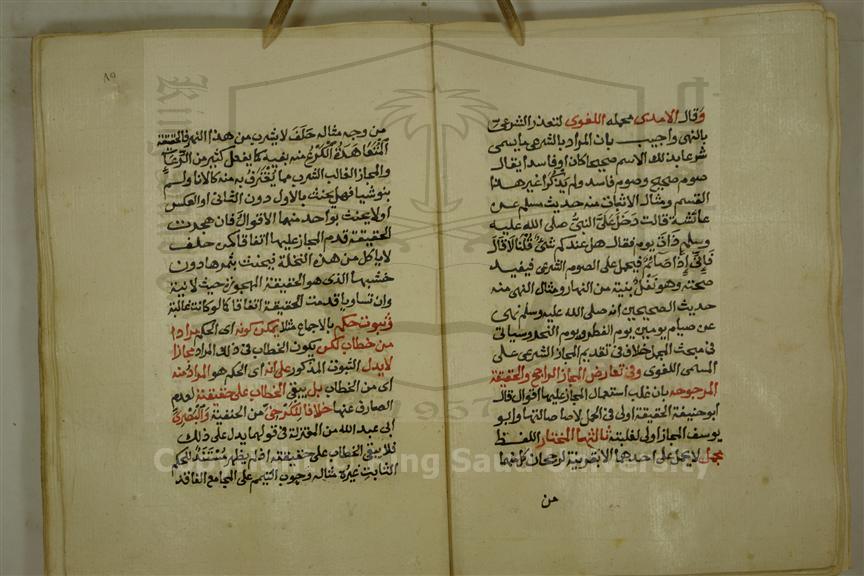 وَقال الآمدى محمله اللغوى لتعذر الشرعى
بالنهى واجيب بان المراد بالشرعى ما يسمى
شرعا بذلك الاسم صحيحا كان او فاسدا يقال
صوم صحيح وصوم فاسد ولم يذكرا غير هذا
القسم ومثال الاثبات منه حديث مسلم عن
عائشة قالت دخل علىّ النبىّ صلى الله عليه
وسلم ذات يوم فقال هل عندكم شئ قلنا لا قال
فإنى إذا صائم فيحمل على الصوم الشرعى فيفيد
صحته وهو نفل بنية من النهار ومثال النهى منه
حديث الصحيحين انه صلى الله عليه وسلم نهى
عن صيام يومين يوم الفطر ويوم النحر وسياتى
فى مبحث المجمل خلاف فى تقديم المجاز الشرعى على
المسمى اللغوى وفى تعارض المجاز الراجح والحقيقة
المرجوحه بان غلب استعمال المجاز عليها اقوال قال
ابو حنيفة الحقيقة اولى فى الحمل لاصالتها وابو
يوسف المجاز اولى لغلبته ثالثها المختار اللفظ
مجمل لا يحمل على احدهما الا بقرينة لرجحان كل منهما
من
٨٥
من وجه مثاله حلف لا يشرب من هذا النهر فالحقيقة
المتعاهدة الكرع منه بفيه كما يفعل كثير من الرعاء
والمجاز الغالب الشرب مما يغترف به منه كالاناء ولم
ينو شيا فهل يحنث بالاول دون الثانى او العكس
او لا يحنث بواحد منهما الاقوال فان هجرت
الحقيقة قدم المجاز عليها اتفاقا كمن حلف
لا ياكل من هذه النخلة فيحنث بثمرها دون
خشبها الذى هو الحقيقة المهجورة حيث لا نية
وان تساويا قدمت الحقيقة اتفاقا كما لو كانت غالبة
وثبوت حكم بالاجماع مثلا يمكن كونه اى الحكم مرادا
من خطاب لكن يكون الخطاب فى ذلك المراد مجازا
لا يدل الثبوت المذكور على انه اى الحكم هو المراد منه
اى من الخطاب بل يبقى الخطاب على حقيقته لعدم
الصارف عنها خلافا للكرخى من الحنفية والبصرى
ابى عبد الله من المعتزلة فى قولهما يدل على ذلك
فلا يبقى الخطاب على حقيقته اذ لم يظهر مستند للحكم
الثابت غيره مثاله وجوب التيمم على المجامع الفاقد
Copyright © King Saud University
1957